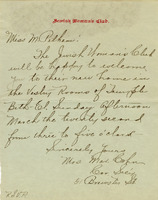 Jewish Women's Club.
Miss McPetham:
The Jewish Woman's Club
will be happy to welcome
you to their new home in
the Vestry Rooms of Temple
Beth El Sunday afternoon
March the twenty second
four thirty to five o'clock
Sincerely Yours
Mrs. Max
Cor. Sec'y
St